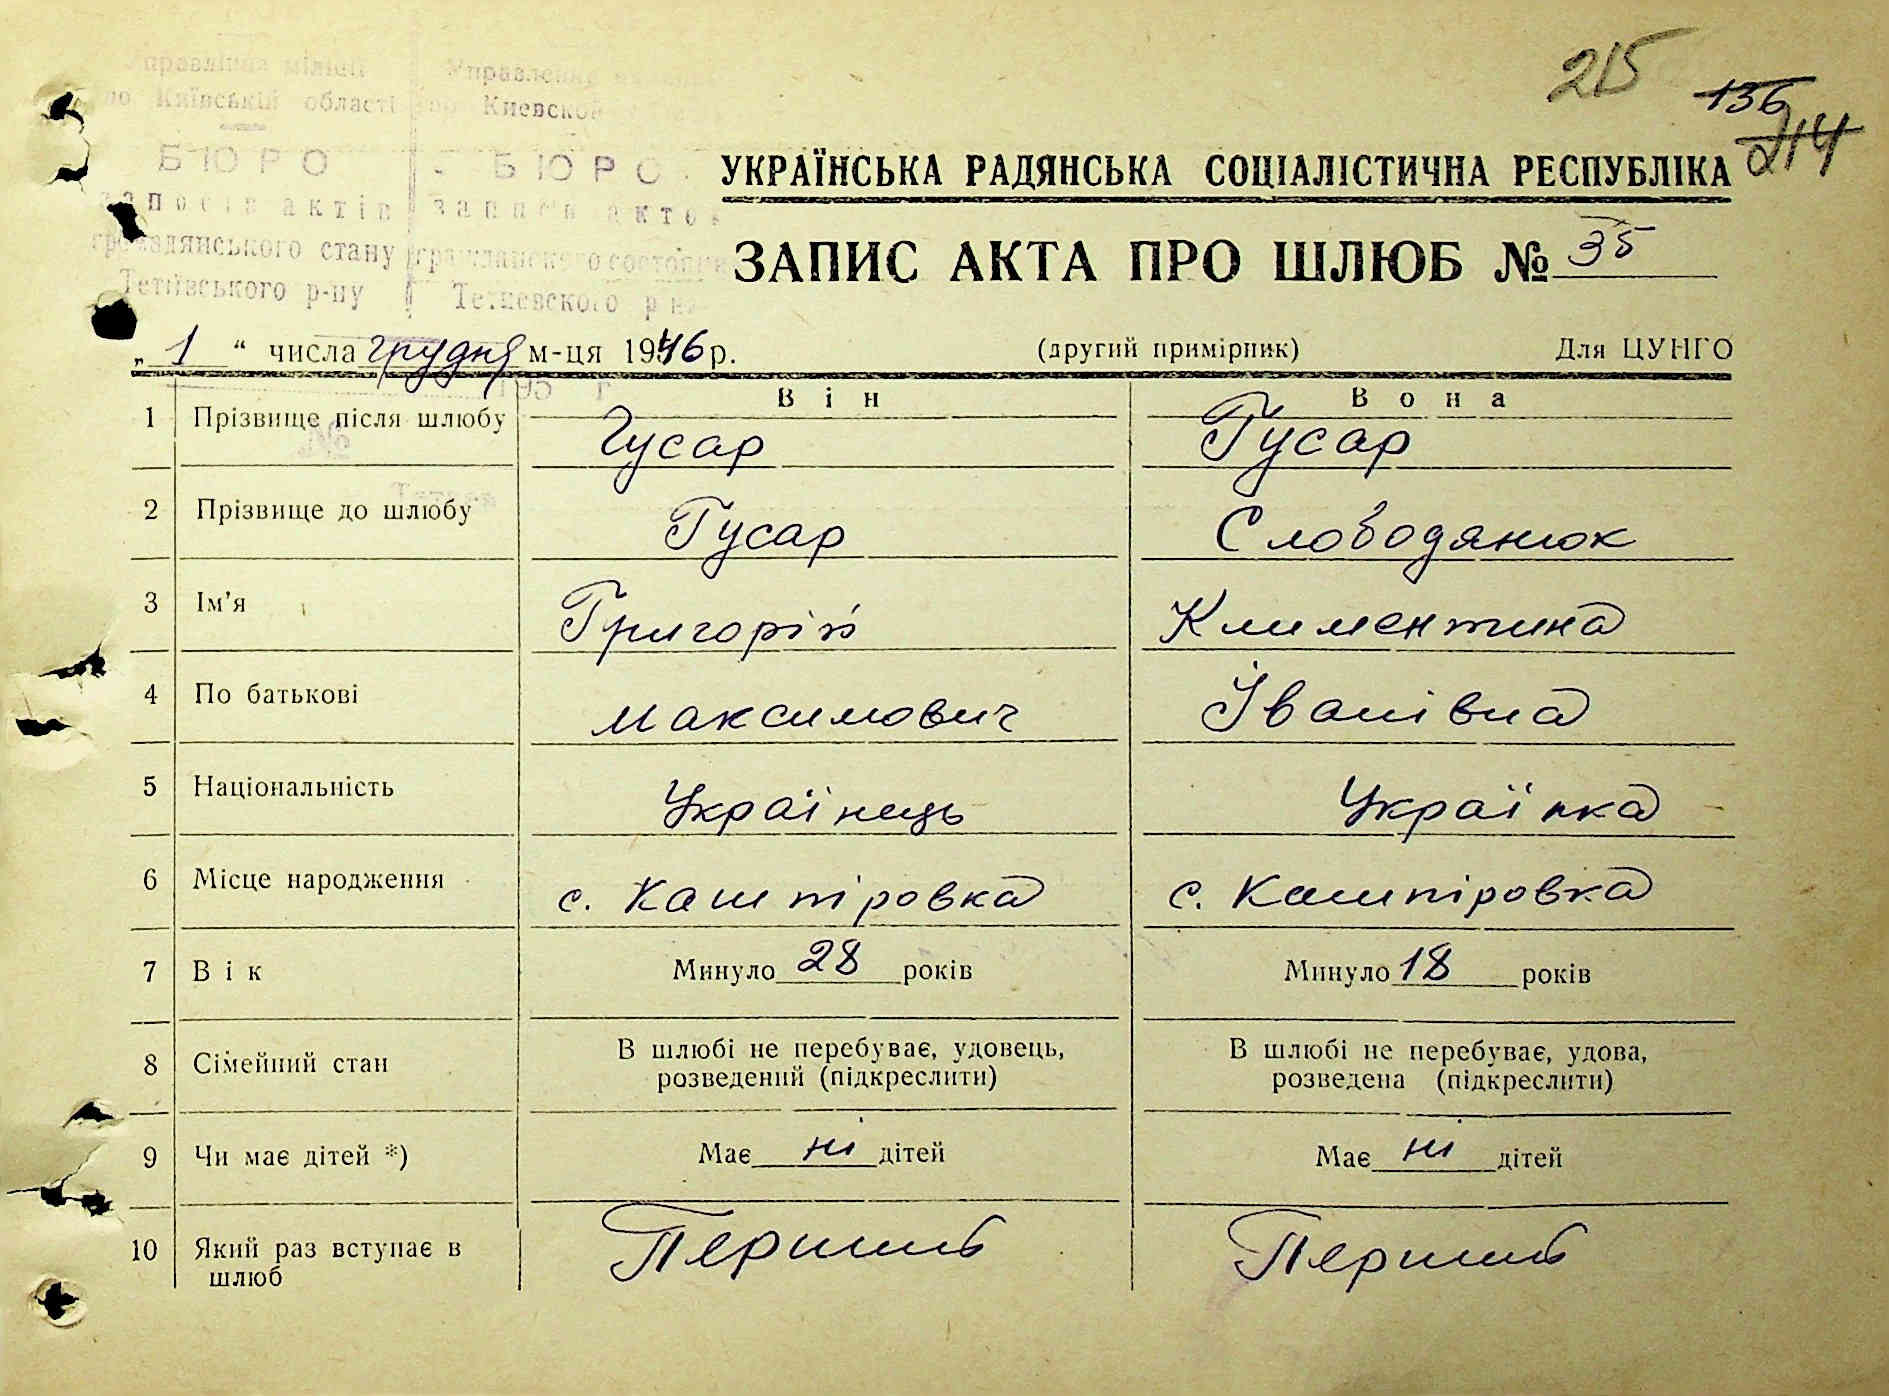 215
136
214
Управління міліції Управление
по Київській області по Киевской
БЮРО БЮРО
записів актів записи актов
громадянського стану гражданского состояния
Тетіївського р-ну Тетиевского р-на
УКРАЇНСЬКА РАДЯНСЬКА СОЦІАЛІСТИЧНА РЕСПУБЛІКА
ЗАПИС АКТА ПРО ШЛЮБ № 35
„ 1 “ числа грудня м-ця 1946 р. (другий примірник) Для ЦУНГО
195 г
Він Вона
1 Прізвище після шлюбу Гусар Гусар
2 Прізвище до шлюбу Гусар Слободянюк
3 Ім'я Григорій Климентина
4 По батькові Максимович Іванівна
5 Національність Українець Українка
6 Місце народження с. Кашпіровка с. Кашпіровка
7 Вік Минуло 28 років Минуло 18 років
8 Сімейний стан В шлюбі не перебуває, удовець, В шлюбі не перебуває, удова,
розведений (підкреслити) розведена (підкреслити)
9 Чи має дітей *) Має ні дітей Має ні дітей
10 Який раз вступає в Перший Перший
шлюб